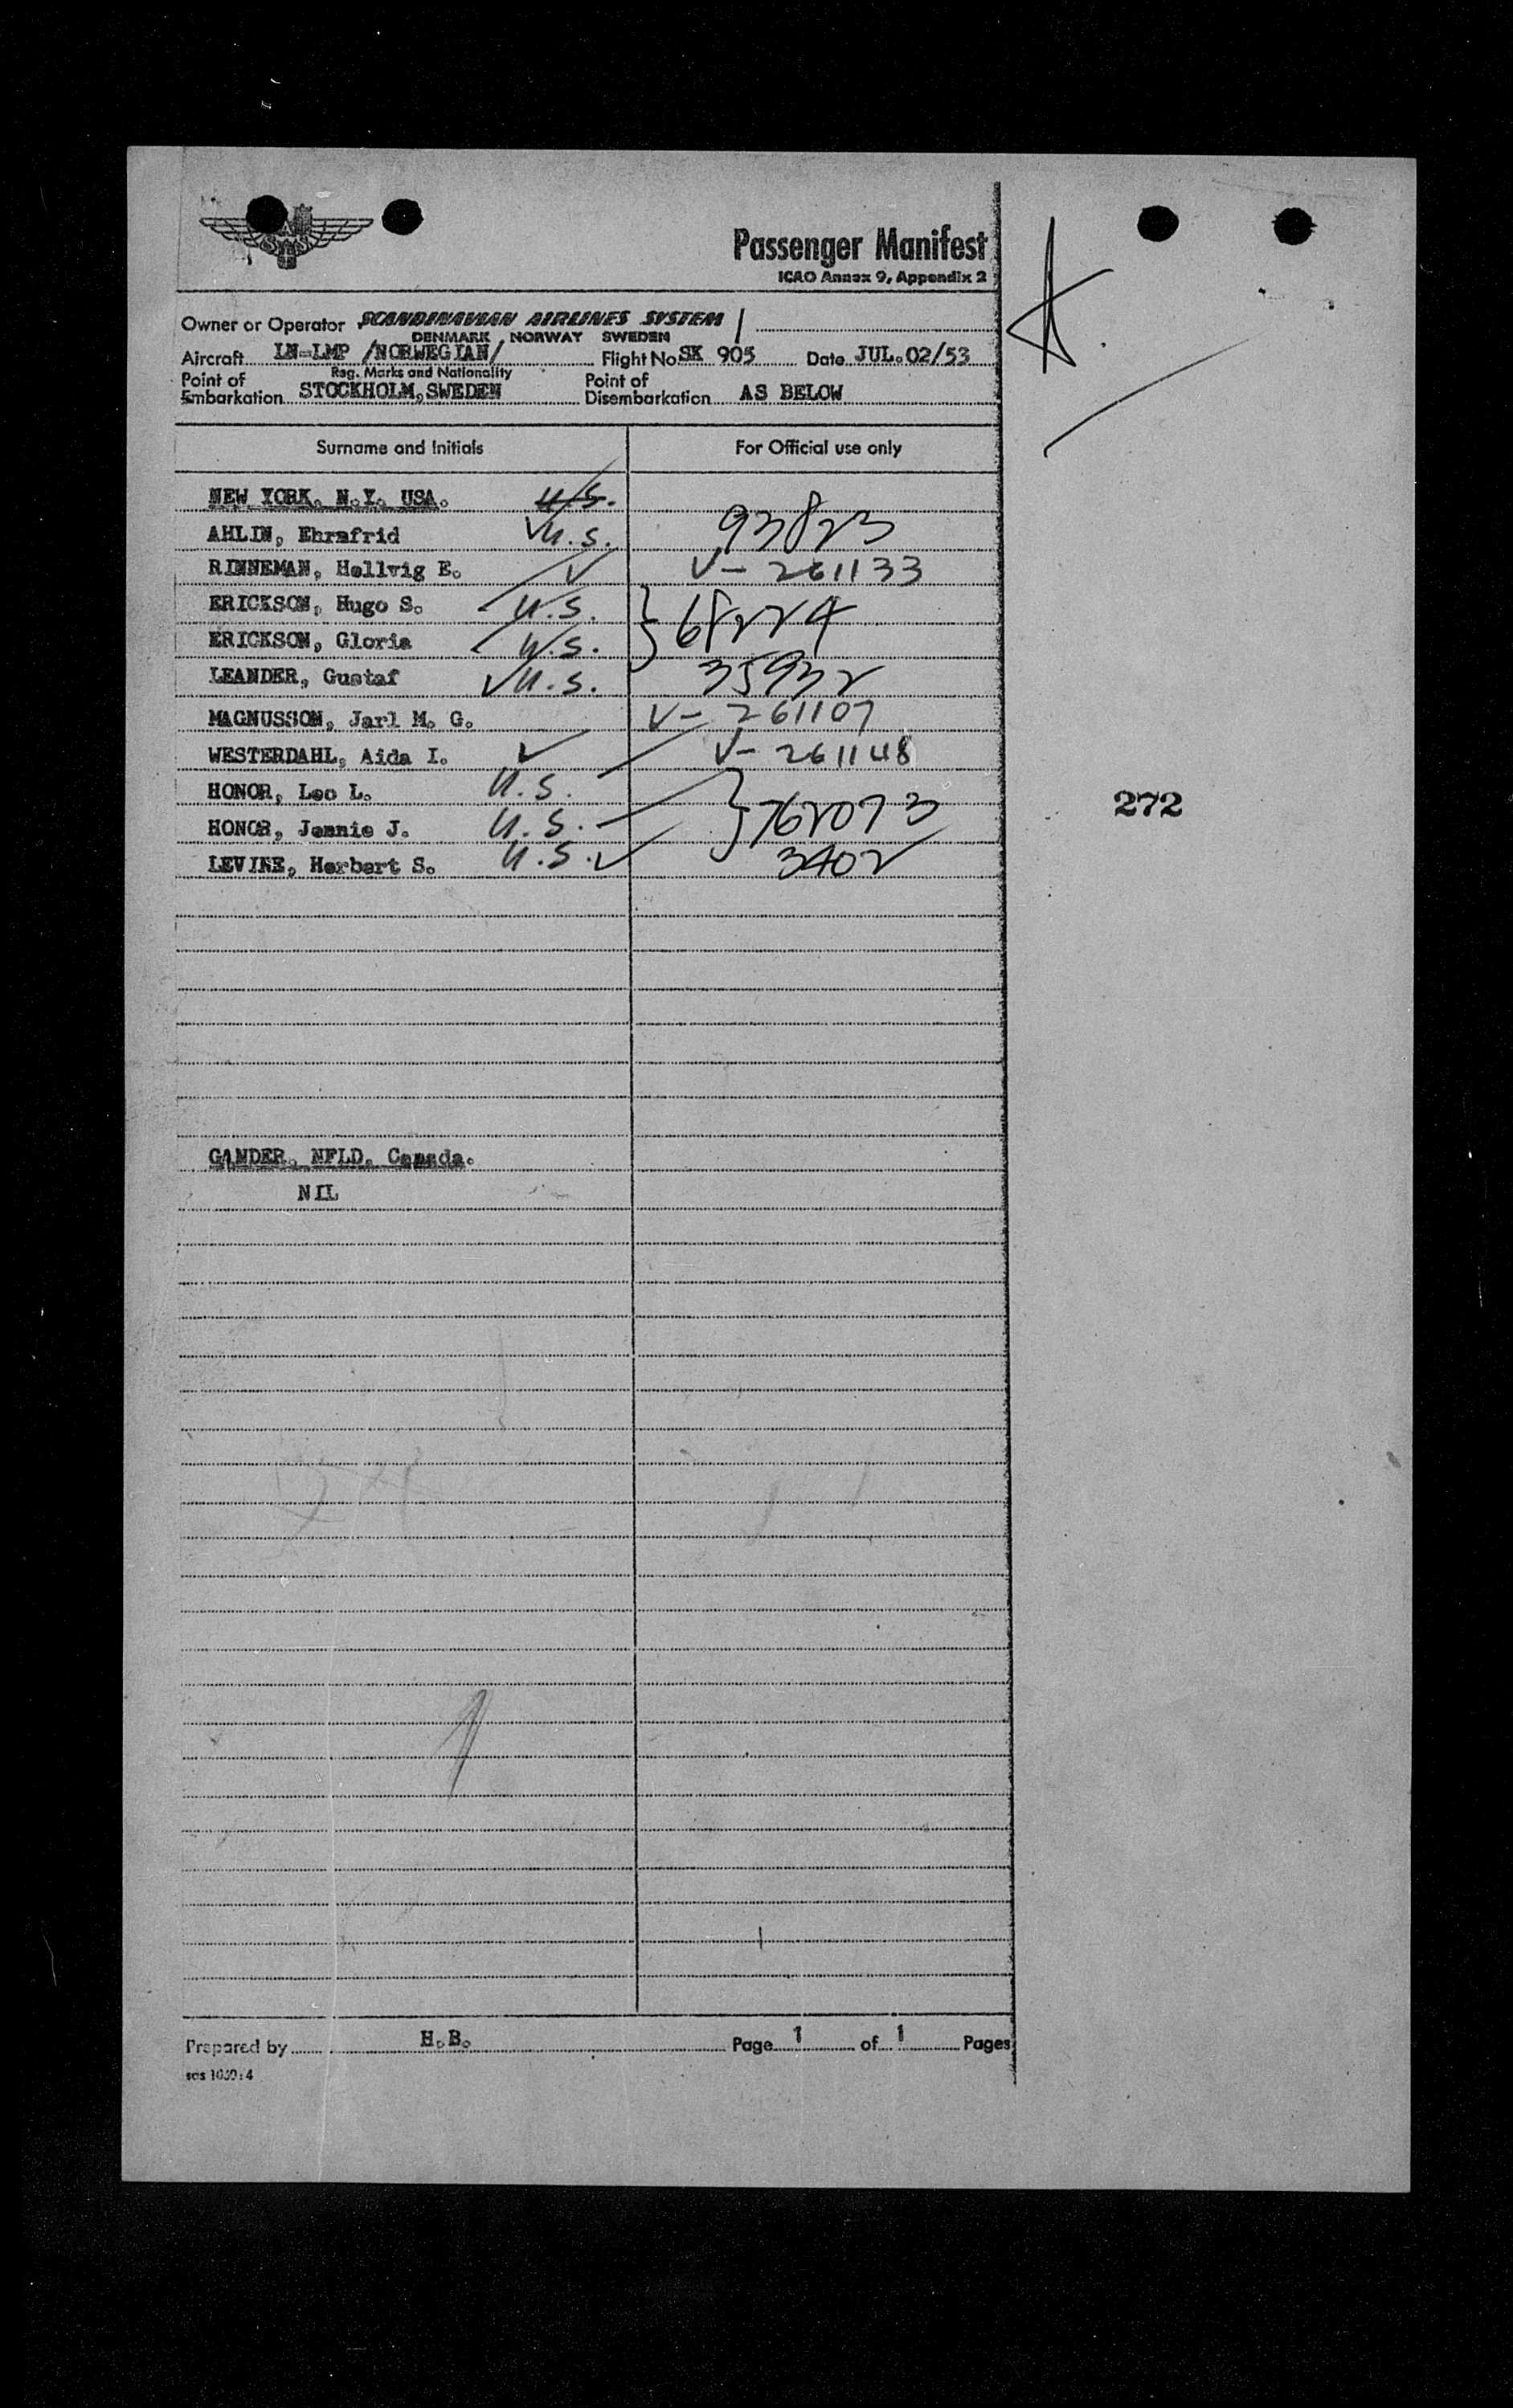 SAS
Passenger Manifest
ICAO Annex 9, Appendix 2
Owner or Operator SCANDINAVIAN AIRLINES SYSTEM
DENMARK NORWAY SWEDEN
Aircraft LN-LMP /NORWEGIAN/ Flight No SK 905 Date JUL.02/53
Reg. Marks and Nationality
Point of Embarkation STOCKHOLM,SWEDEN Point of Disembarkation AS BELOW
Surname and Initials For Official use only
NEW YORK, N.Y. USA. U.S.
AHLIN, Ehrafrid U.S. 93823
RINNEMAN, Hellvig E. V- 261133
ERICKSON, Hugo S. U.S. 68224
ERICKSON, Gloria U.S.
LEANDER, Gustaf U.S. 35932
MAGNUSSON, Jarl M. G. V- 261107
WESTERDAHL, Aida I. V- 261148
HONOR, Leo L. U.S. 762073
HONOR, Jennie J. U.S.
LEVINE, Herbert S. U.S. 3402
272
GANDER, NFLD, Canada.
NIL
Prepared by H.B. Page 1 of 1 Pages
sas 1030:4